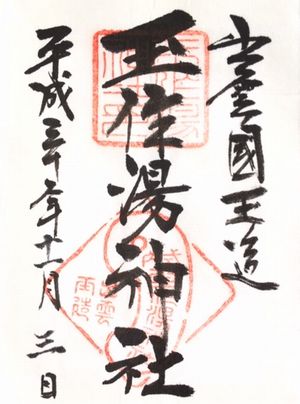 出雲國玉造
玉作湯神社
平成三十年十一月三日